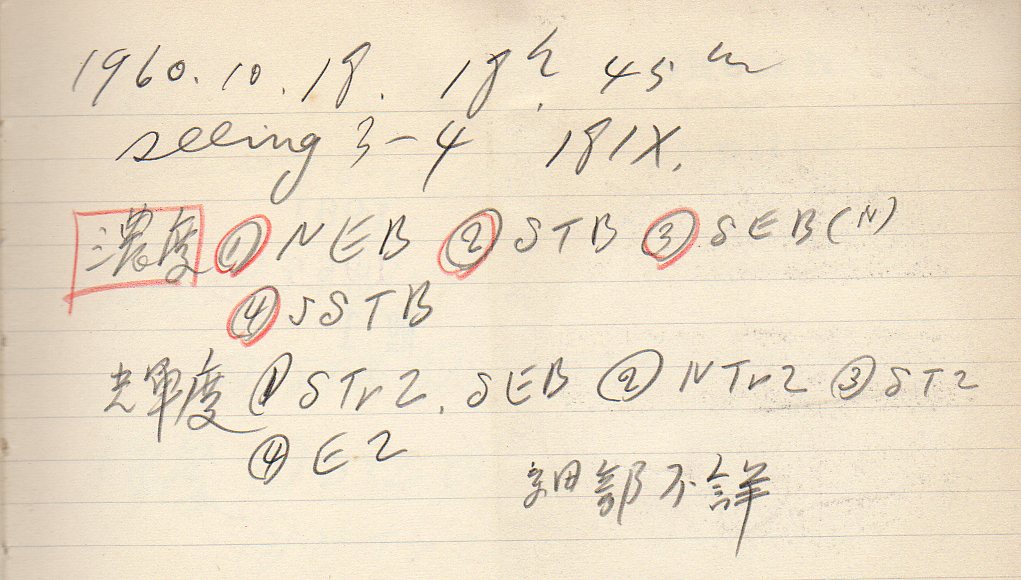 1960. 10. 18. 18h. 45m
seeing 3-4 181X.
濃度 ① NEB ② STB ③ SEB(N)
④ SSTB
光輝度 ① STrZ, SEB ② NTrZ ③ STZ
④ EZ
細部不詳